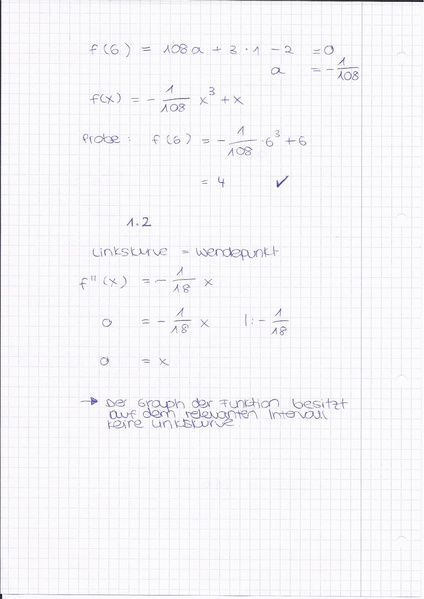 f(6) = 108a + 3 · 1 - 2 = 0
a = - 1/108
f(x) = - 1/108 x³ + x
Probe: f(6) = - 1/108 · 6³ + 6
= 4 ✓
1.2
Linkskurve = Wendepunkt
f''(x) = - 1/18 x
0 = - 1/18 x |: - 1/18
0 = x
→ Der Graph der Funktion besitzt
auf dem relevanten Intervall
keine Linkskurve